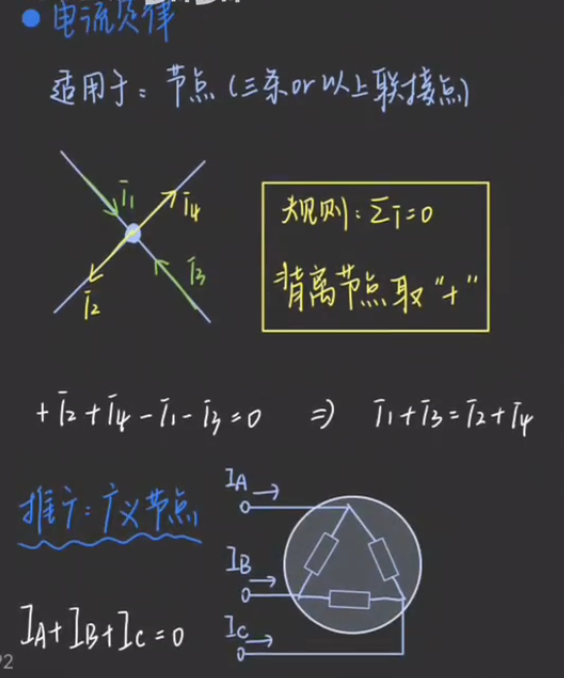 电流定律
适用于：节点（三条or以上联接点）
I₁
I₄
I₂
I₃
规则：ΣI=0
背离节点取“+”
+I₂+I₄-I₁-I₃=0 ⇒ I₁+I₃=I₂+I₄
推广：广义节点
I_A
I_B
I_C
I_A+I_B+I_C=0
92